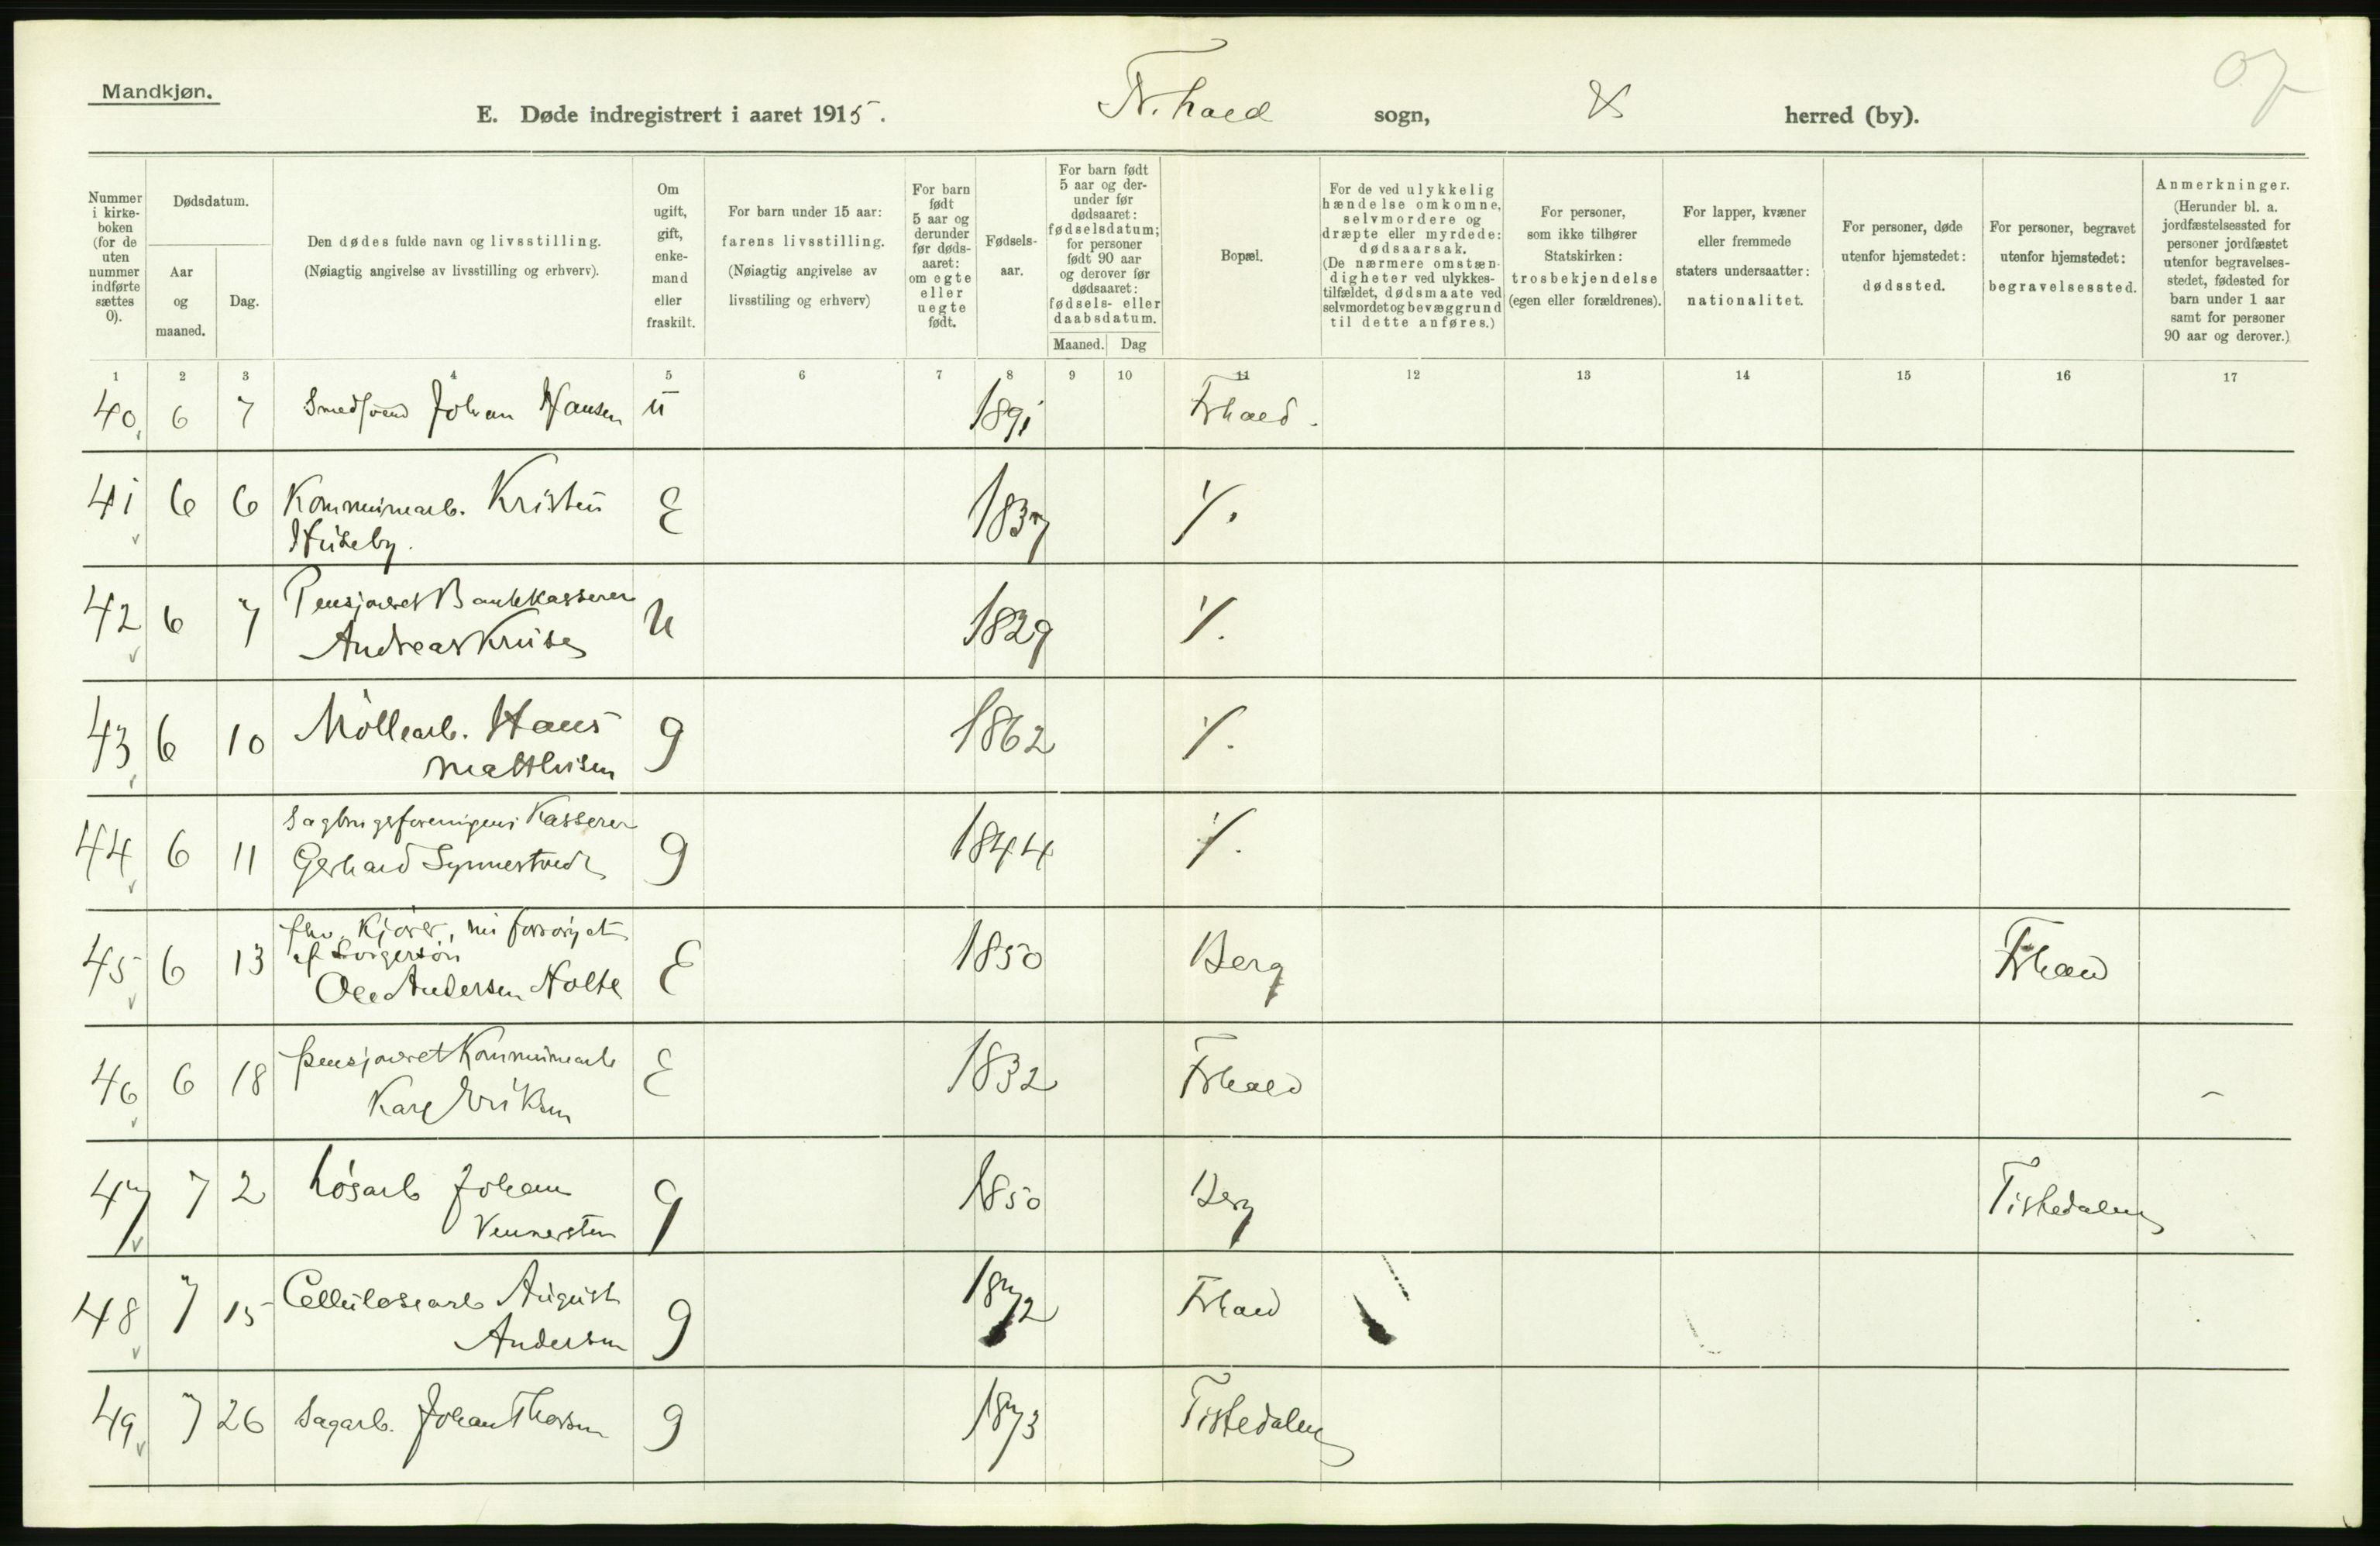 Mandkjøn.
E. Døde indregistrert i aaret 1915. Fr.hald sogn, herred (by).
Nummer i kirke-boken (for de uten nummer indførte sættes 0).
Dødsdatum.
Aar og maaned.
Dag.
Den dødes fulde navn og livsstilling.
(Nøiagtig angivelse av livsstilling og erhverv).
Om ugift, gift, enke-mand eller fraskilt.
For barn under 15 aar: farens livsstilling.
(Nøiagtig angivelse av livsstiling og erhverv)
For barn født 5 aar og derunder før døds-aaret: om egte eller uegte født.
Fødsels-aar.
For barn født 5 aar og der-under før dødsaaret: fødselsdatum; for personer født 90 aar og derover før dødsaaret: fødsels- eller daabsdatum.
Maaned. Dag
Bopæl.
For de ved ulykkelig hændelse omkomne, selvmordere og dræpte eller myrdede: dødsaarsak.
(De nærmere omstæn-digheter ved ulykkes-tilfældet, dødsmaate ved selvmordet og bevæggrund til dette anføres.)
For personer, som ikke tilhører Statskirken: trosbekjendelse (egen eller forældrenes).
For lapper, kvæner eller fremmede staters undersaatter: nationalitet.
For personer, døde utenfor hjemstedet: dødssted.
For personer, begravet utenfor hjemstedet: begravelsessted.
Anmerkninger.
(Herunder bl. a. jordfæstelsessted for personer jordfæstet utenfor begravelses-stedet, fødested for barn under 1 aar samt for personer 90 aar og derover.)
1 2 3 4 5 6 7 8 9 10 11 12 13 14 15 16 17
40 6 7 Smedsvend Johan Hansen u 1891 Frhald.
41 6 6 Kommunearb. Kristen E 1837 "/.
Huseby.
42 6 7 Pensjoneret Bankkasserer u 1829 "/.
Andreas Kruse
43 6 10 Möllearb. Hans g 1862 "/.
Matthisen
44 6 11 Sagbrugsforeningens Kasserer g 1844 "/.
Gerhard Synnestvedt
45 6 13 fhv. Kjører, nu forsørget E 1850 Berg Frhald
af Svigersøn
Ole Andersen Holte
46 6 18 pensjoneret Kommunearb E 1832 Frhald
Karl Eriksen
47 7 2 Løsarb Johan g 1850 Berg Tistedalen
Vennersten
48 7 15 Cellulosearb August g 1872 Frhald
Andersen
49 7 26 Sagarb. Johan Thorsen g 1873 Tistedalen